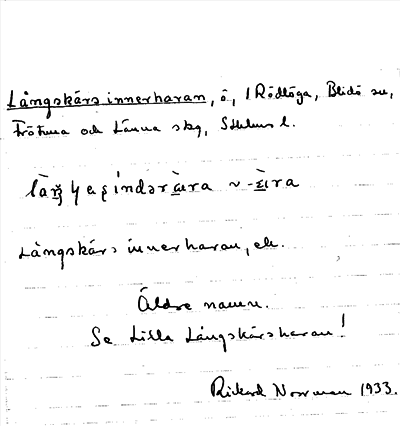 Långskärs innerharan, ö, 1 Rödlöga, Blidö sn,
Frötuna och Länna skg, Sthlms l.
Långskärs innerharan, ek.
Äldre namn.
Se Lilla Långskärsharan!
Rickard Norrman 1933.